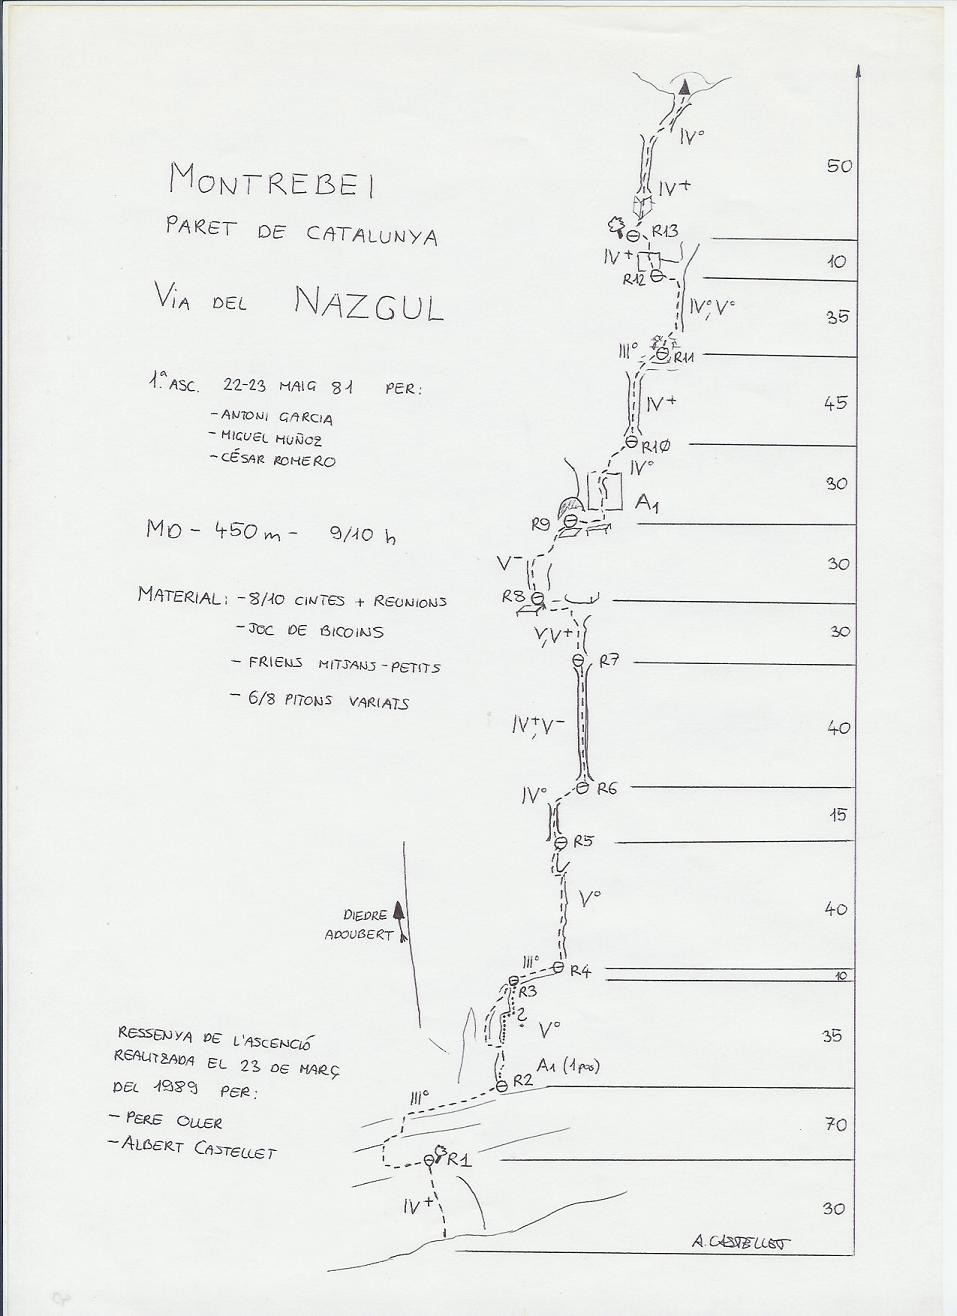 MONTREBEI
PARET DE CATALUNYA
VIA DEL NAZGUL
1.ª ASC. 22-23 MAIG 81 PER:
- ANTONI GARCIA
- MIGUEL MUÑOZ
- CÉSAR ROMERO
MD - 450 m - 9/10 h
MATERIAL: - 8/10 CINTES + REUNIONS
- JOC DE BICOINS
- FRIENS MITJANS - PETITS
- 6/8 PITONS VARIATS
DIEDRE
ADOUBERT
RESSENYA DE L'ASCENCIÓ
REALITZADA EL 23 DE MARÇ
DEL 1989 PER:
- PERE OLLER
- ALBERT CASTELLET
IVº
50
IV+
R13
IV+
10
R12
IVº, Vº
35
IIIº
R11
IV+
45
R10
IVº
30
A1
R9
V-
30
R8
V, V+
30
R7
IV+, V-
40
R6
IVº
15
R5
Vº
40
IIIº
R4
10
R3
?
Vº
35
A1 (1 pas)
R2
IIIº
70
R1
IV+
30
A. CASTELLET